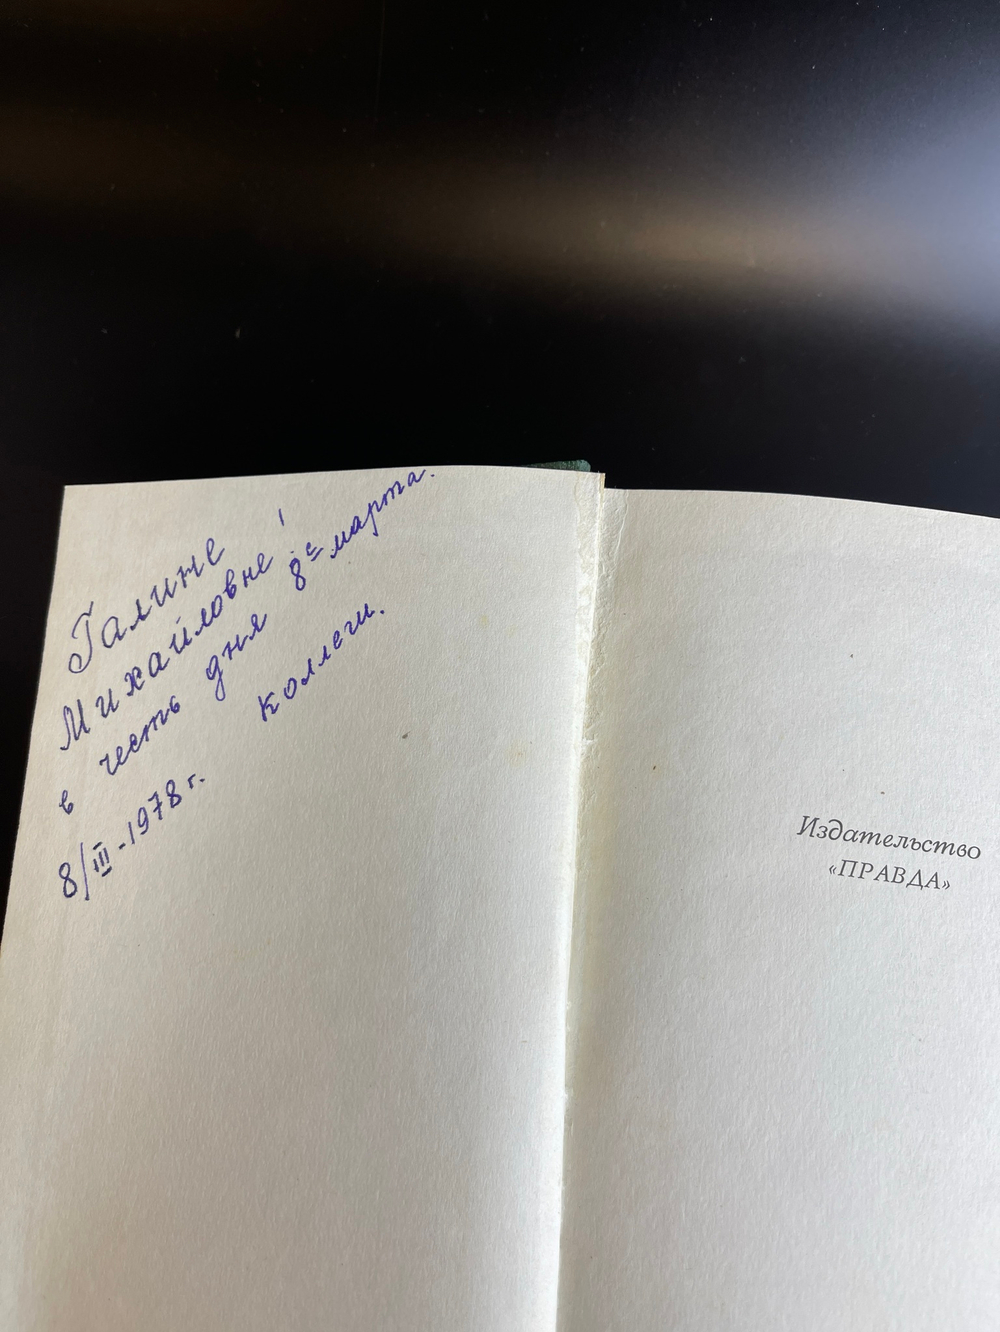 Галине
Михайловне!
в честь дня 8е марта.
Коллеги.
8/III-1978 г.
Издательство
«ПРАВДА»